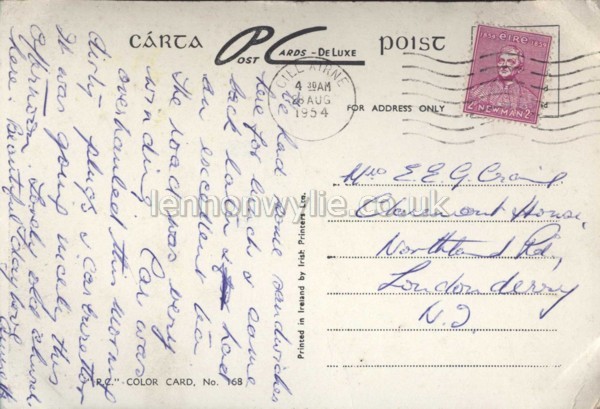 CÁRTA
POST CARDS - DE LUXE
POIST
CILL AIRNE
4 30 AM
28 AUG
1954
FOR ADDRESS ONLY
ÉIRE
NEWMAN
We had some sandwiches
here for lunch & came
back later & had
an excellent tea
The road was very
winding. Car was
overhauled this morning
dirty plugs & carburetor
It was going nicely this
afternoon. Lovely old church
here. Beautiful
Mrs E E G Craig
Claremont House,
Northland Rd,
Londonderry
N.I.
lennonwylie.co.uk
Printed in Ireland by Irish Printers Ltd.
"P.C." COLOR CARD, No. 168